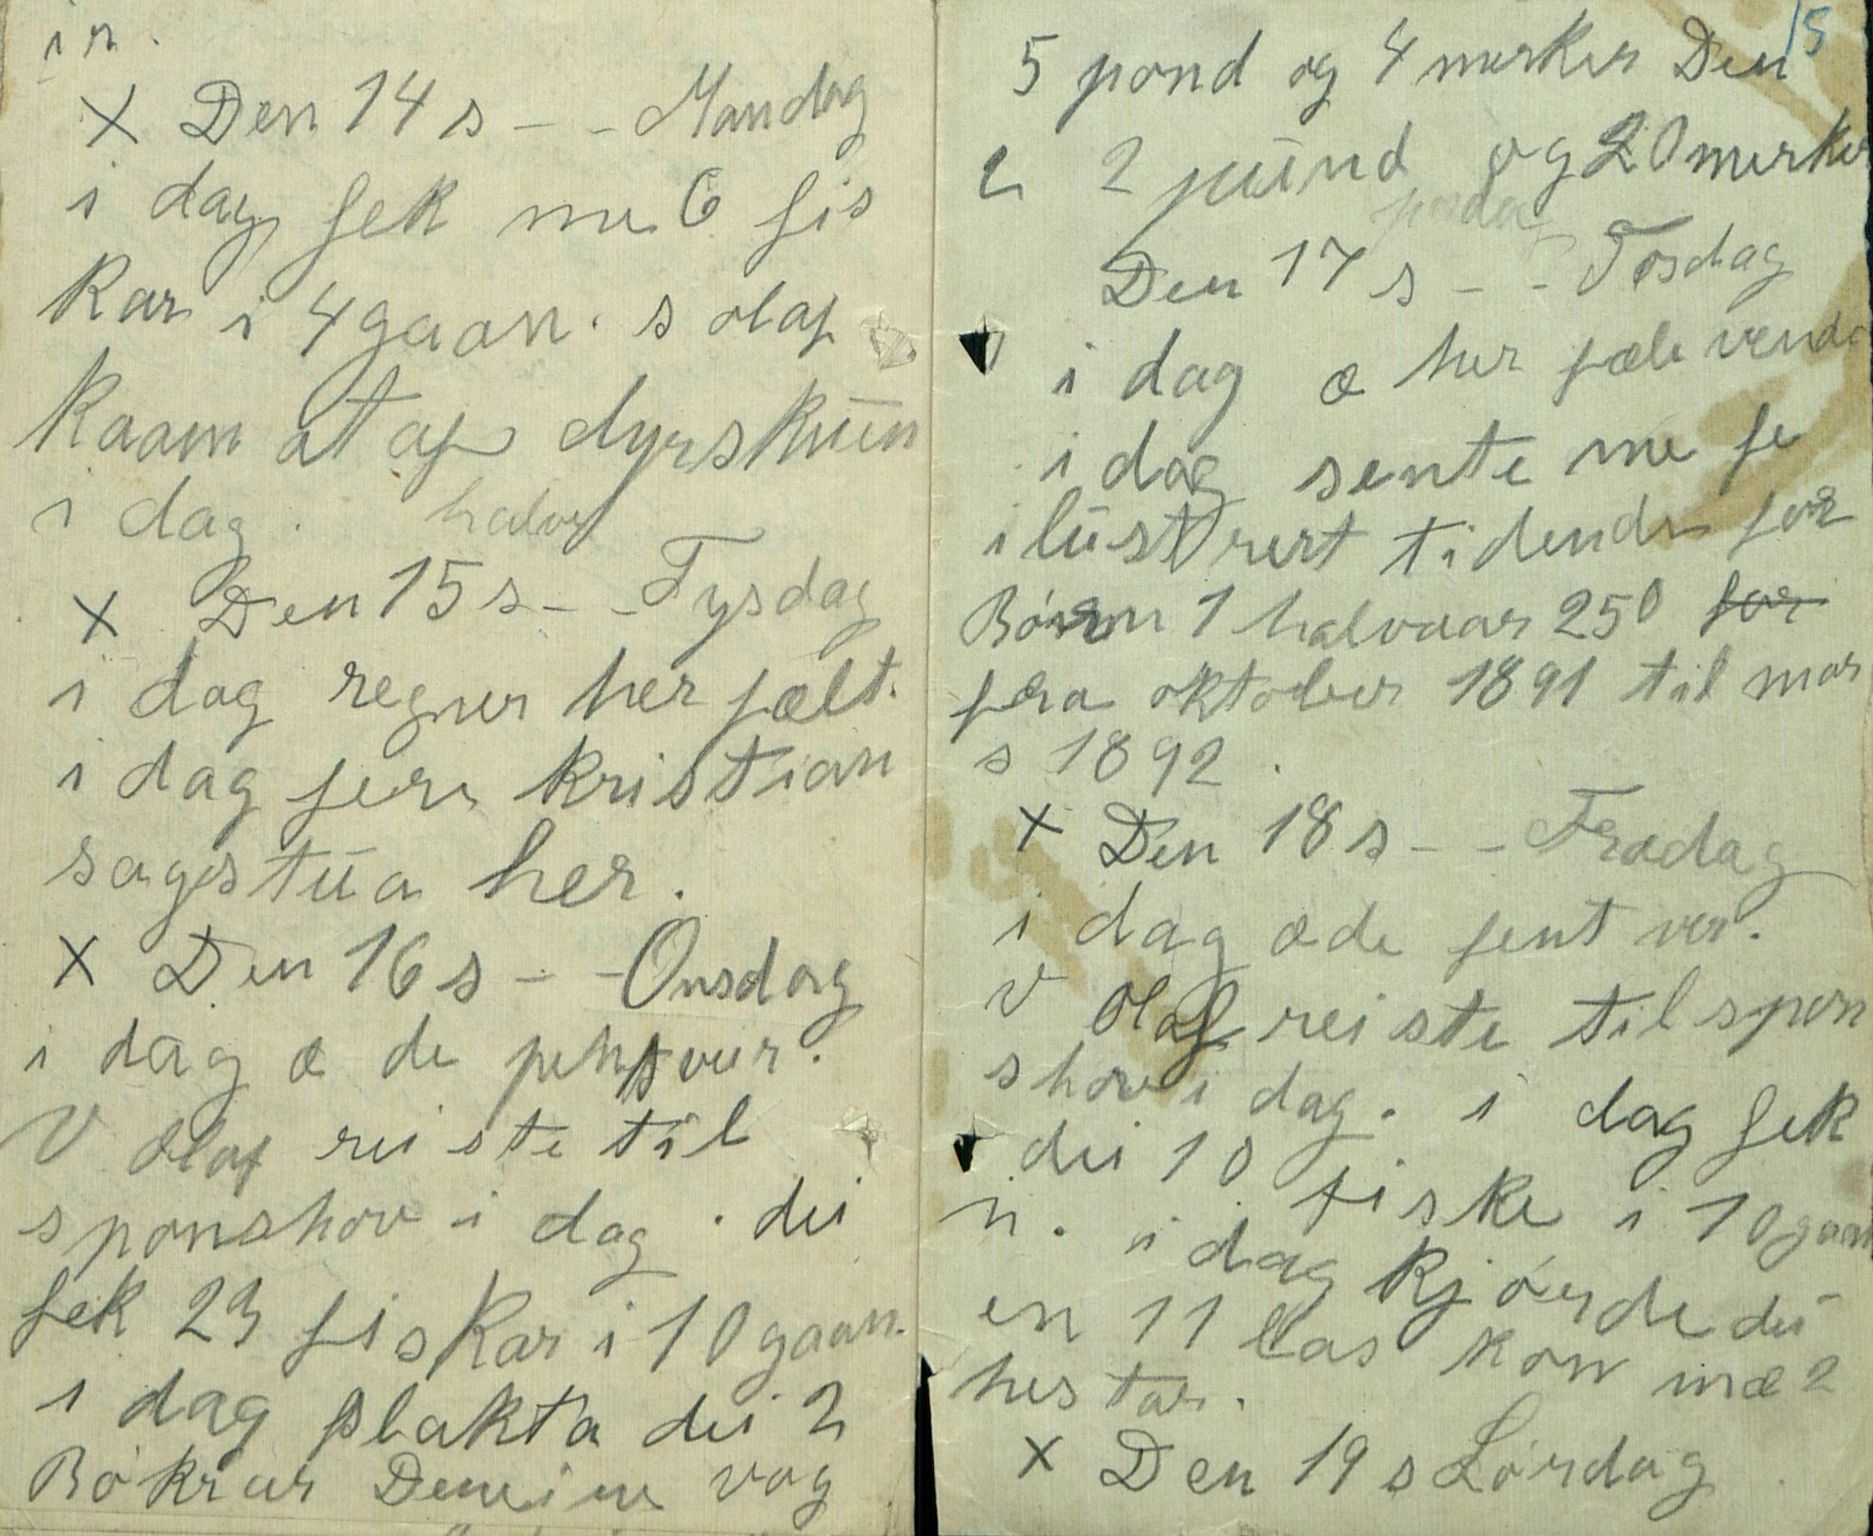 in.
x Den 14 s - - Mandag
i dag fek me 6 fis
kar i 4 gaan. s olaf
kaam at af dyrskuūn
i dag. halvor
x Den 15 s - - Tysdag
i dag regner her fælt.
i dag fere kristian
sagstūa her.
x Den 16 s - - Onsdag
i dag æ de pent veer.
V olaf reiste til
sponshov i dag. dei
fek 23 fiskar i 10 gaan.
i dag slakta dei 2
Bókrar Den eine vog
15
5 pond og 4 merker Den
2 pūnd og 20 merker
Den 17 s - - Tosdag
i dag æ her fæle vende
i dag sente me fe
ilūstrert tidende for
Børn 1 halvaar 250 for
fra oktober 1891 til mar
s 1892.
x Den 18 s - - Fredag
i dag æ de fent ver.
V olaf reiste til spon
shov i dag. i dag fek
dei 10 fiske i 10 gaan
n. i dag kjørde dei
en 11 las korn mæ 2
hestar.
x Den 19 s Lørdag